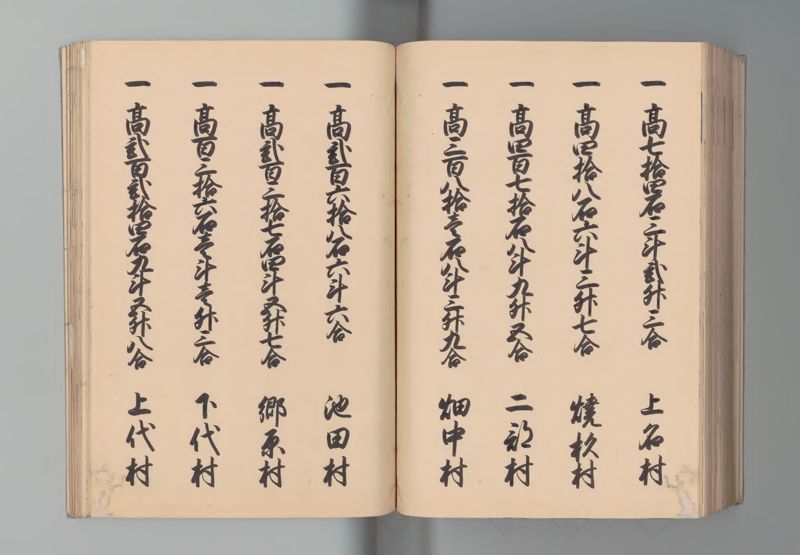 一 高七拾四石三斗弐升三合 上名村
一 高四拾八石六斗三升七合 焼杉村
一 高四百七拾石八斗九升五合 二部村
一 高三百八拾壱石八斗三升九合 畑中村
一 高弐百六拾八石六斗六合 池田村
一 高弐百三拾七石四斗五升七合 郷原村
一 高百三拾六石壱斗壱升三合 下代村
一 高弐百弐拾四石九斗五升八合 上代村